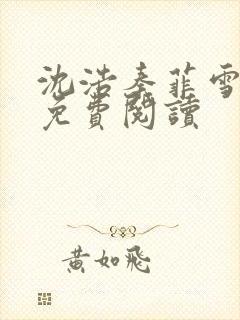 沈浩秦菲雪
免費閱讀
黃如飛